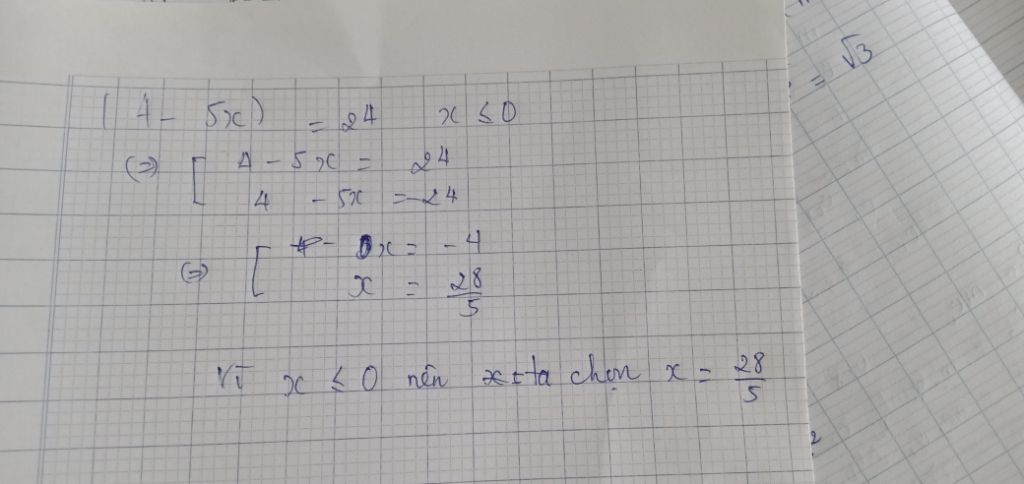 |4 - 5x| = 24 x ≤ 0
(=) [ 4 - 5x = 24
4 - 5x = -24
(=) [ x = -4
x = 28/5
Vì x ≤ 0 nên ta chọn x = 28/5
= √3
2